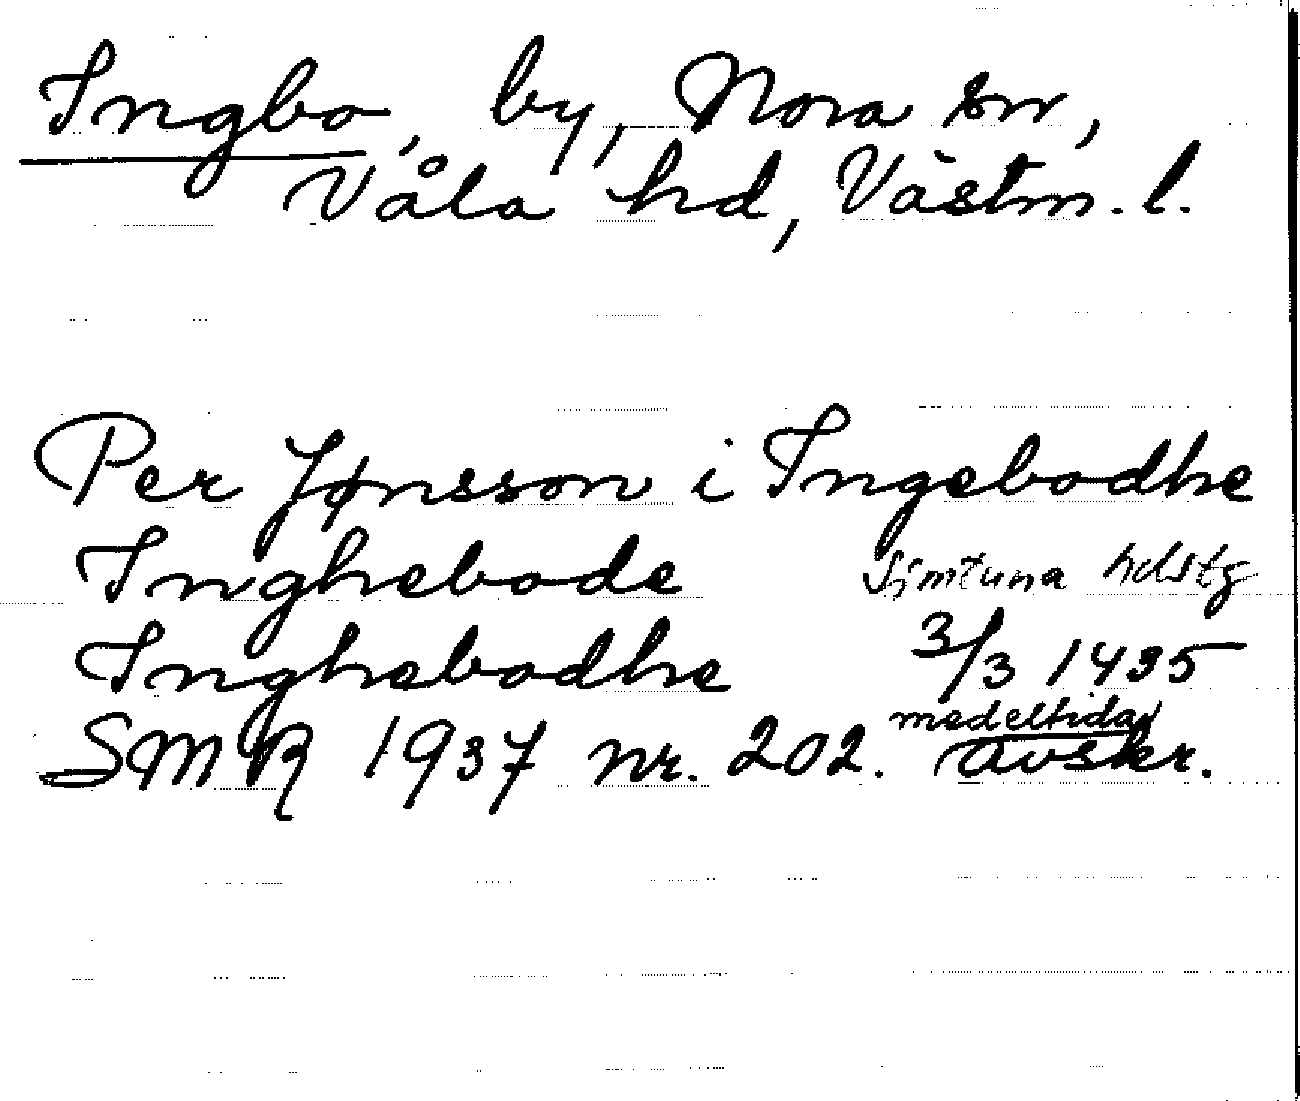 Ingbo, by, Nora sn,
Våla hd, Västm. l.
Per Jønsson i Ingebodhe
Inghebode Simtuna hdstg
Inghebodhe 3/3 1495
medeltida
SMR 1937 nr. 202. avskr.